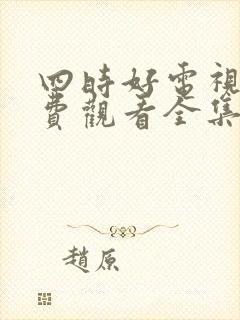 四時好電視
費觀看全集
趙原